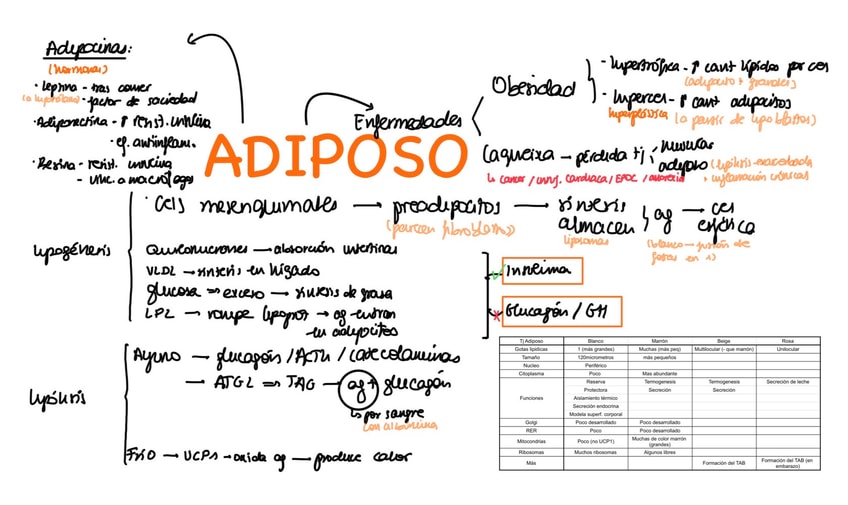 Adipocinas:
(hormonas)
· Leptina - tras comer
· factor de saciedad
· Adiponectina - ↑ resist. insulina
ef. antiinflam.
· Resina - resist. insulina
- vinc. a macrófagos
ADIPOSO
Enfermedades
Obesidad
- hipertrófica - ↑ cant lípidos por cel
(adipocito + grandes)
- hipercel - ↑ cant adipocitos
hiperplásica (a partir de lipoblastos)
Caquexia - pérdida tj
muscular
adiposo (lipólisis exacerbada
+ inflamación crónica)
↳ cancer / insuf. cardiaca / EPOC / anorexia
Lipogénesis
· Cels mesenquimales → preadipocitos → síntesis
almacen } ag → cel
esférica
(parecen fibroblastos)
liposomas
(blanco → fusión de
gotas en 1)
Quilomicrones → absorción intestinal
VLDL → síntesis en hígado
glucosa ⇒ exceso → síntesis de grasa
LPL → rompe lipoprot → ag entran
en adipocitos
✓ Insulina
✗ Glucagón / GH
Lipólisis
Ayuno → glucagón / ACTH / catecolaminas
→ ATGL ⇒ TAG → ag + glucagón
↳ por sangre
con albúmina
FRIO → UCP1 → oxida ag → produce calor
Tj Adiposo Blanco Marrón Beige Rosa
Gotas lipídicas 1 (más grandes) Muchas (más peq) Multilocular (- que marrón) Unilocular
Tamaño 120micrometros más pequeños
Nucleo Periférico
Citoplasma Poco Mas abundante
Funciones Reserva Termogenesis Termogenesis Secreción de leche
Protectora Secreción Secreción
Aislamiento térmico
Secreción endocrina
Modela superf. corporal
Golgi Poco desarrollado Poco desarrollado
RER Poco Poco desarrollado
Mitocondrias Poco (no UCP1) Muchas de color marrón (grandes)
Ribosomas Muchos ribosomas Algunos libres
Más Formación del TAB Formación del TAB (en embarazo)